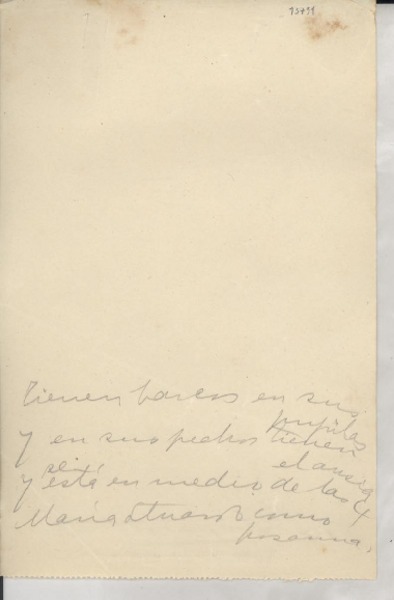 Tienen barcos en sus
pupilas
y en sus pechos tienen
el ansia
y está en medio de las 4
María como
hosanna.